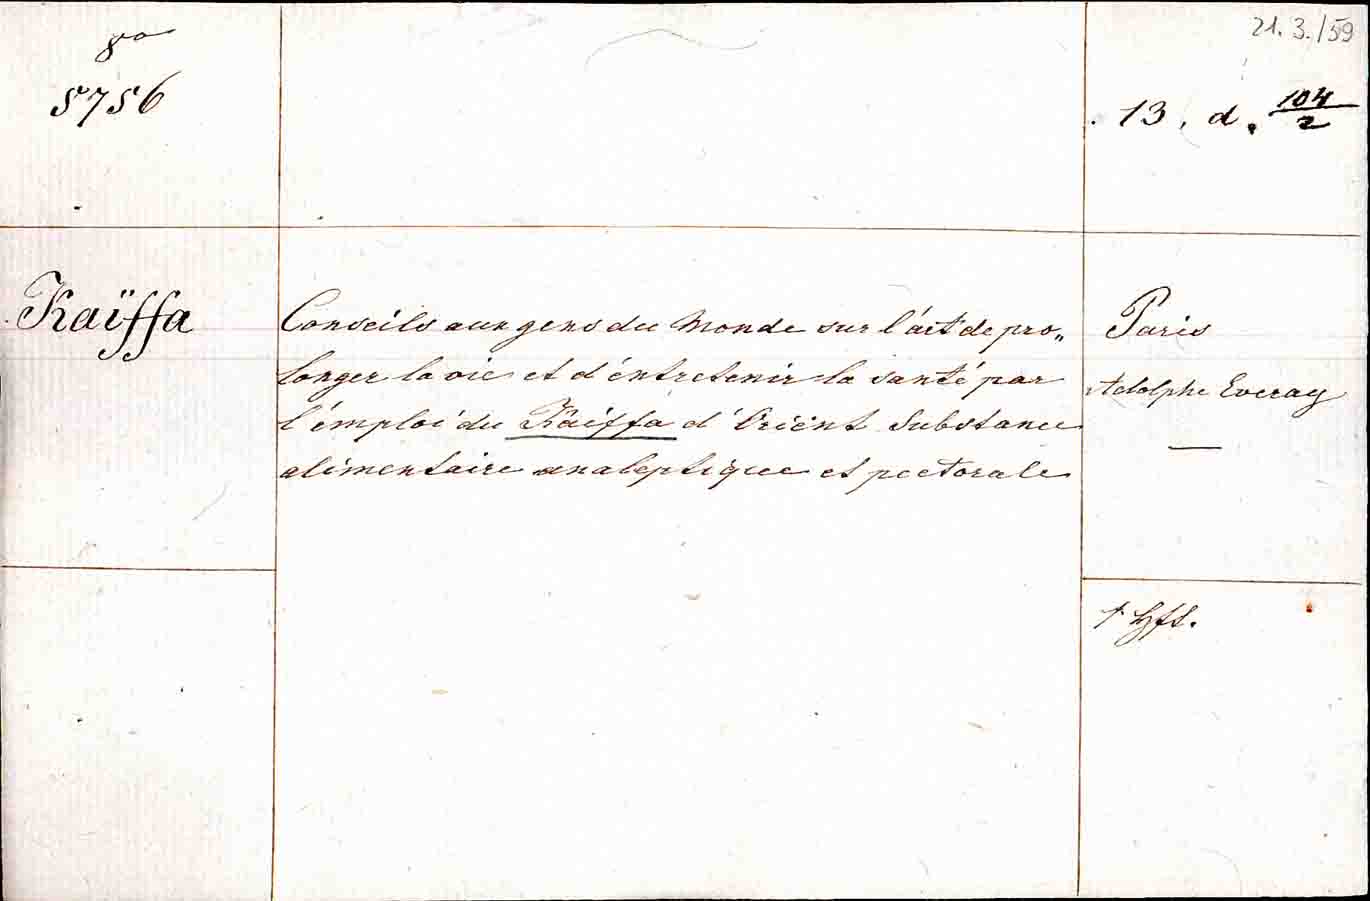 8vo
5756
21. 3./59
13. d. 104/2
Kaïffa
Conseils aux gens du Monde sur l'art de pro„
longer la vie et d'éntretenir la santé par
l'émploi du Kaiffa d'Orient Substance
alimentaire analeptique et pectorale
Paris
Adolphe Everay
—
1 Hft.